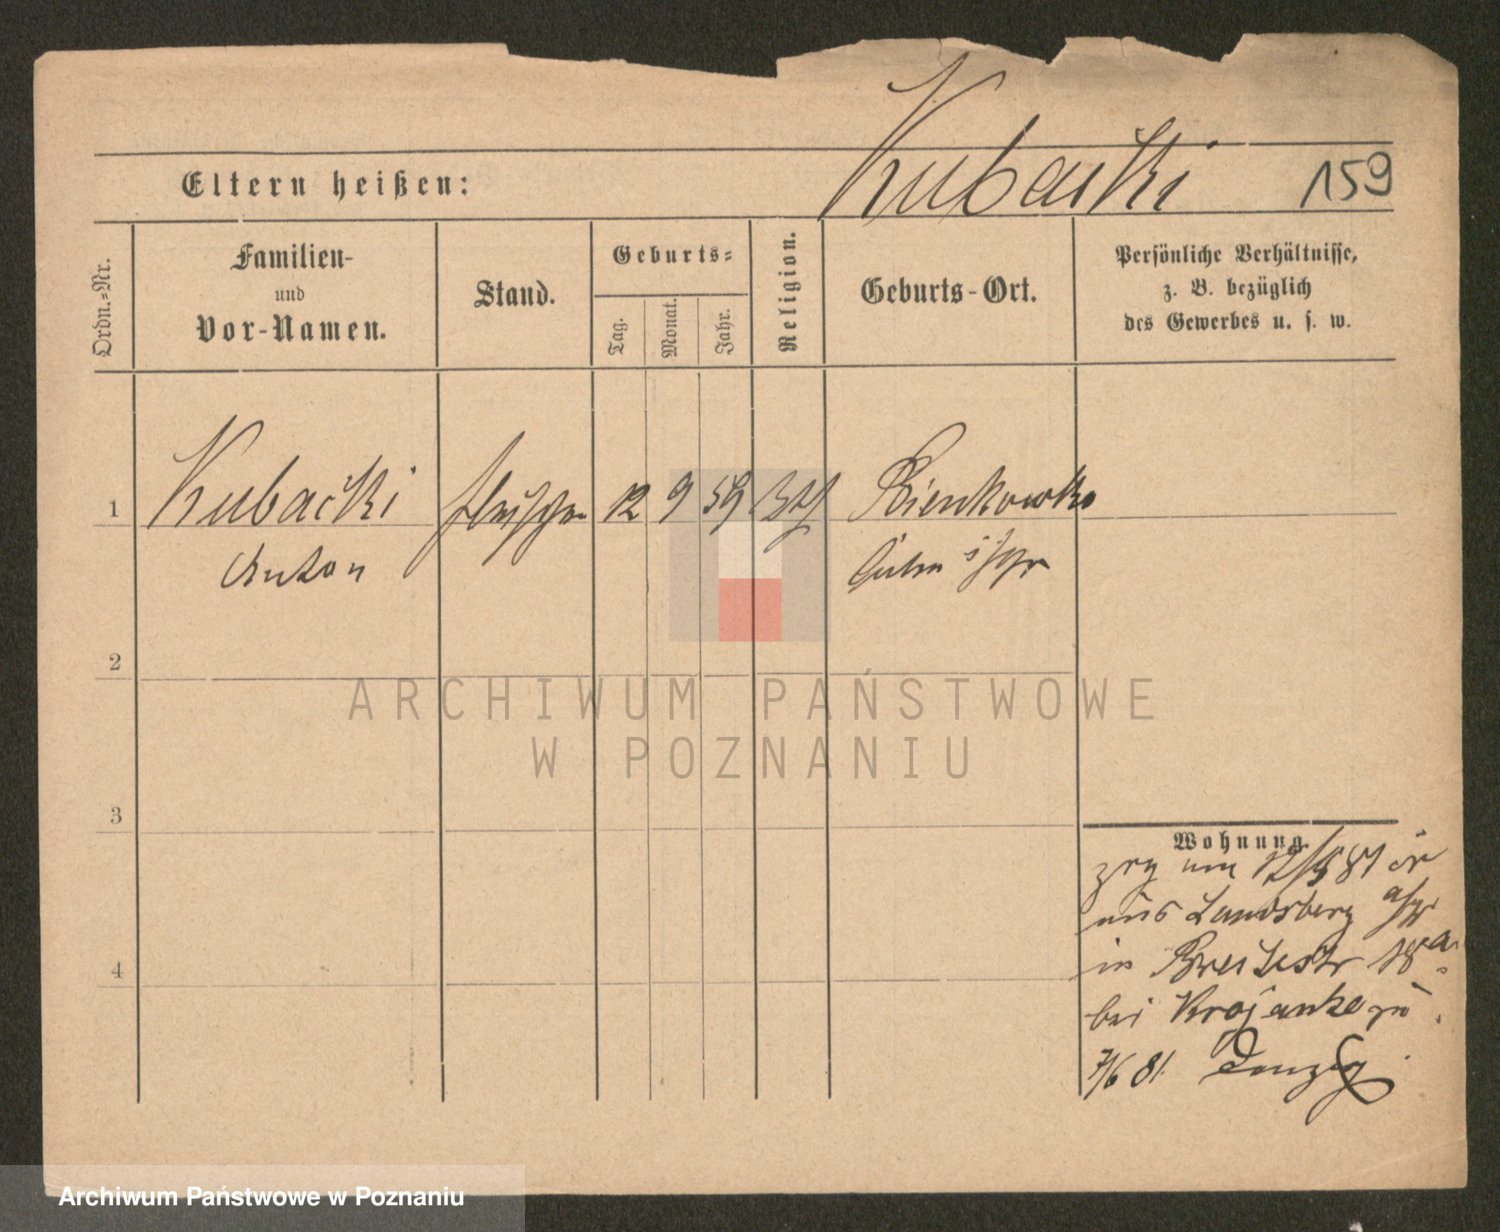 Kubacki
159
Eltern heißen:
Ordn.-Nr.
Familien-
und
Vor-Namen.
Stand.
Geburts-
Tag.
Monat.
Jahr.
Religion.
Geburts-Ort.
Persönliche Verhältnisse,
z. B. bezüglich
des Gewerbes u. s. w.
1
Kubacki
Anton
12
9
59
Bienkowko
2
ARCHIWUM PAŃSTWOWE
W POZNANIU
3
Wohnung.
zog am 12/5 81
aus Landsberg
in Breitestr 18a
bei Krojanke
4
7/6 81. Danzig
Archiwum Państwowe w Poznaniu